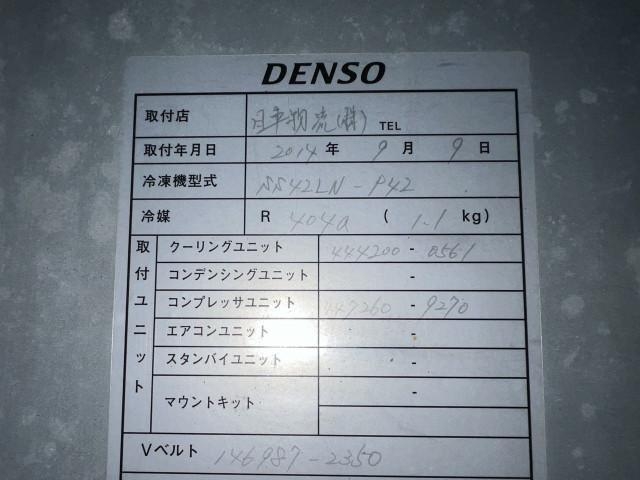 DENSO
取付店 日平物流(株) TEL
取付年月日 2014年 9月 9日
冷凍機型式 SS42LN-P42
冷媒 R 404a ( 1.1 kg)
取付ユニット
クーリングユニット 444200 - 0561
コンデンシングユニット -
コンプレッサユニット 447260 - 9270
エアコンユニット -
スタンバイユニット -
マウントキット -
Vベルト 146987-2350